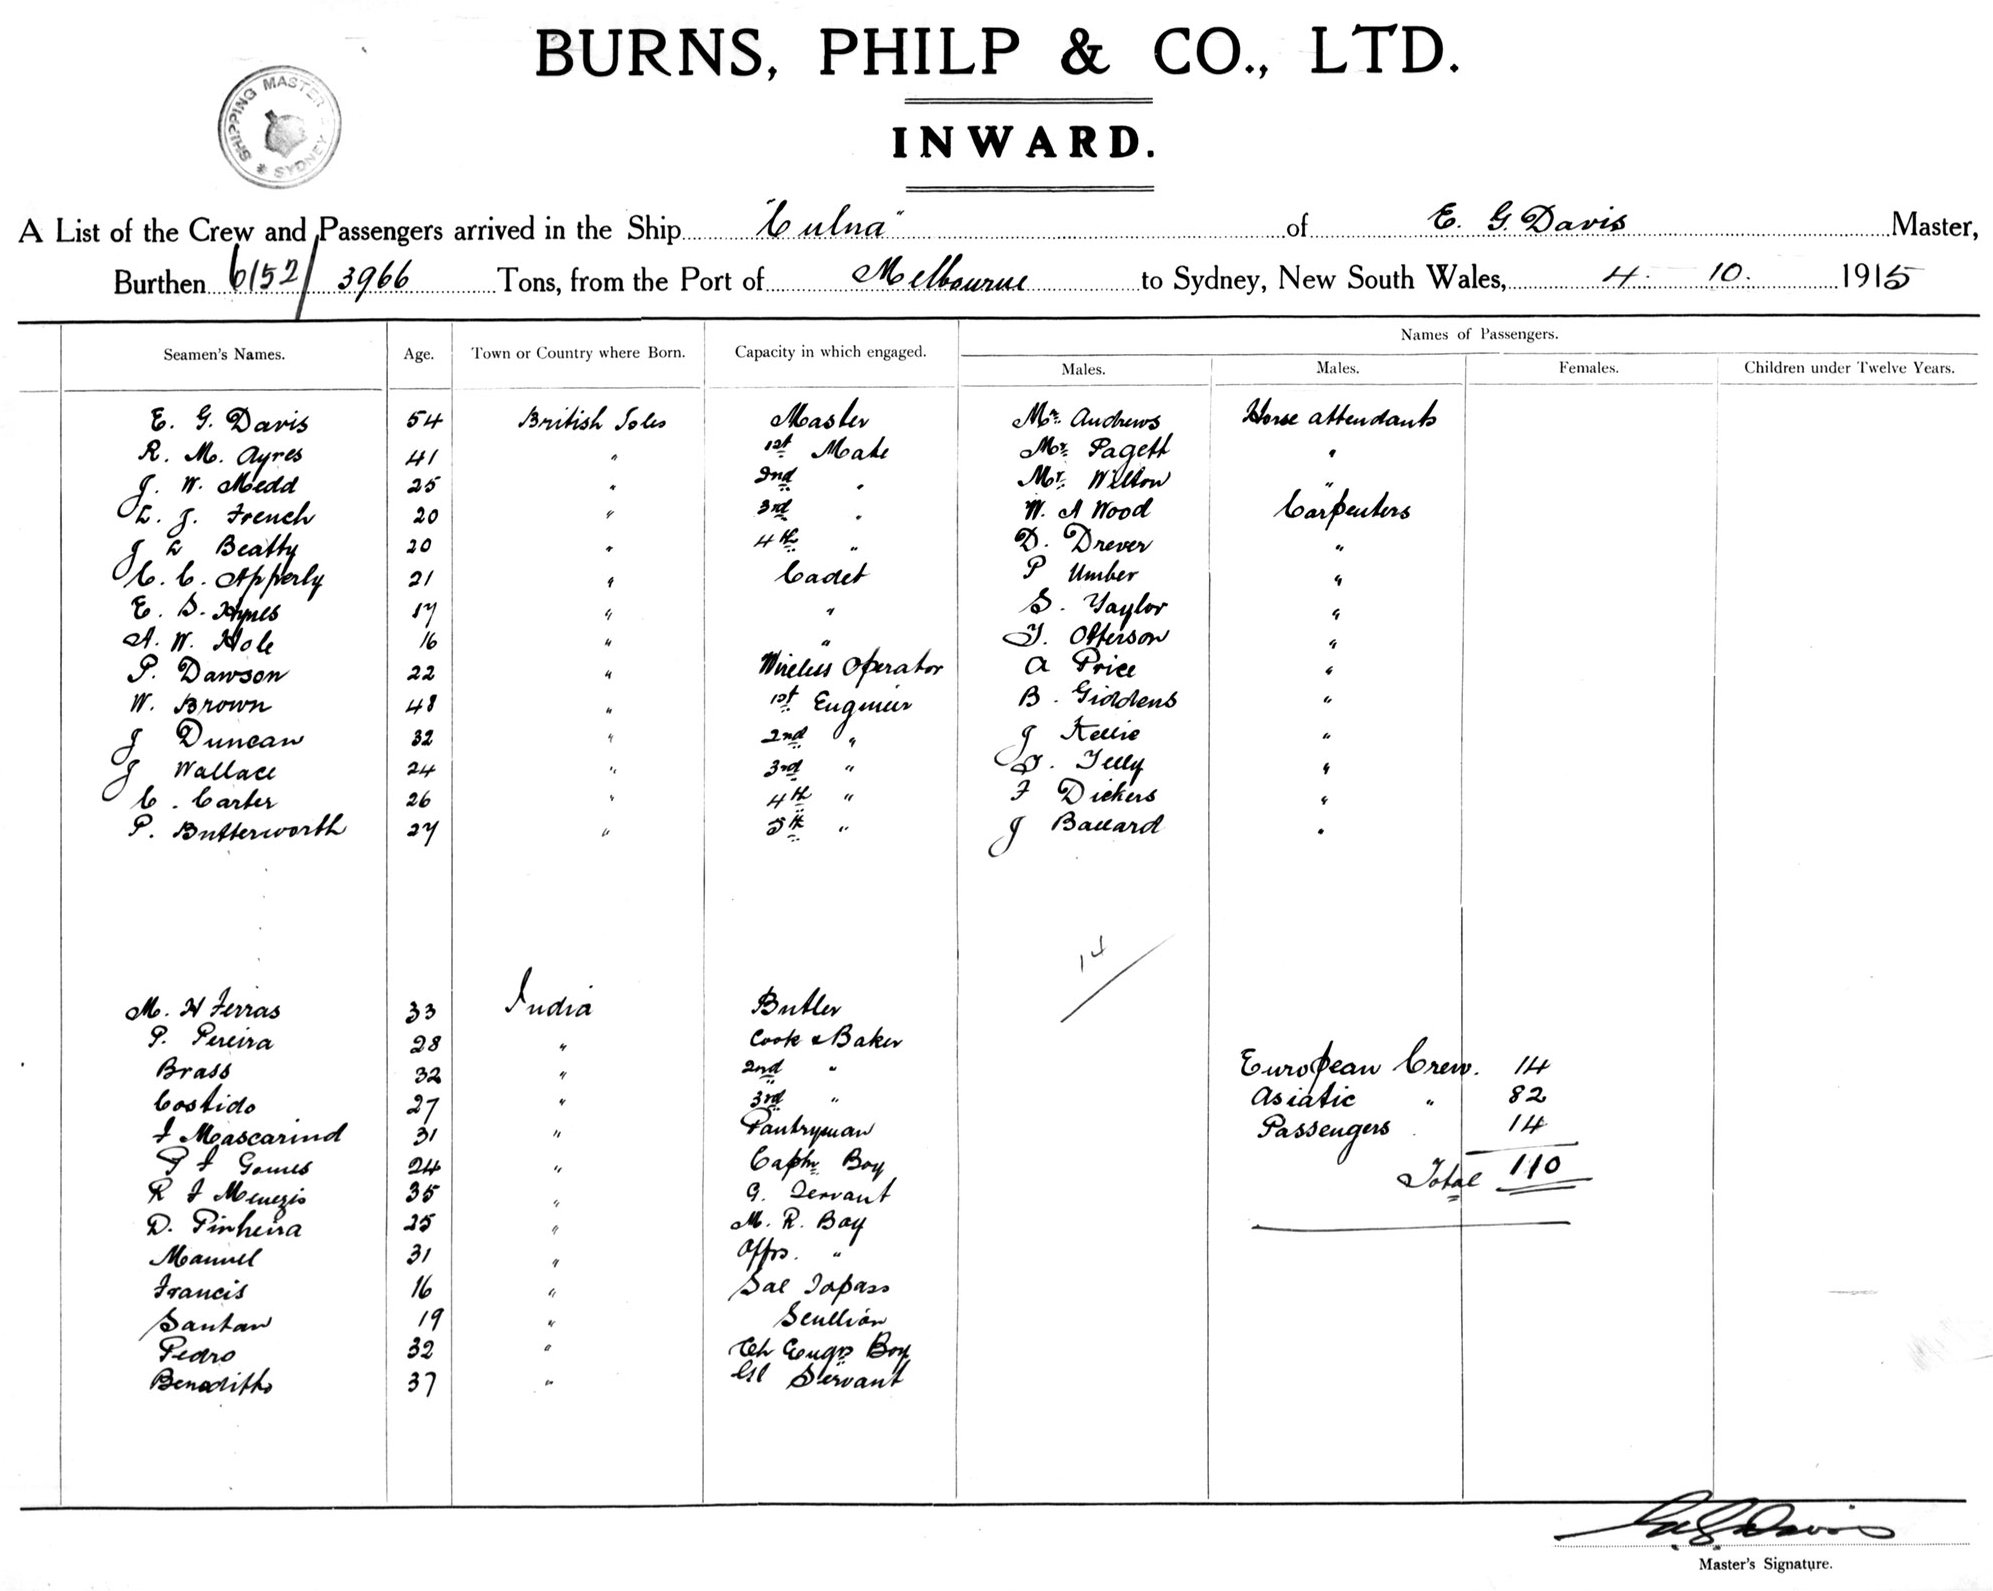 BURNS, PHILP & CO., LTD.
SHIPPING MASTER * SYDNEY
INWARD.
A List of the Crew and Passengers arrived in the Ship "Culna" of E. G. Davis Master,
Burthen 6152/3966 Tons, from the Port of Melbourne to Sydney, New South Wales, 4. 10. 1915
Seamen's Names. Age. Town or Country where Born. Capacity in which engaged. Names of Passengers.
Males. Males. Females. Children under Twelve Years.
E. G. Davis 54 British Isles Master Mr. Andrews Horse attendants
R. M. Ayres 41 " 1st Mate Mr. Pagett "
J. W. Medd 25 " 2nd " Mr. Wilton "
L. J. French 20 " 3rd " W. A Wood Carpenters
J L Beatty 20 " 4th " D. Drever "
C. C. Apperly 21 " Cadet P Umber "
E. S. Hynes 17 " " S. Taylor "
A. W. Hole 16 " " T. Otterson "
P. Dawson 22 " Wireless Operator A Price "
W. Brown 48 " 1st Engineer B. Giddens "
J Duncan 32 " 2nd " J Kellie "
J Wallace 24 " 3rd " J. Telly "
C. Carter 26 " 4th " F Dickers "
P. Butterworth 27 " 5th " J Ballard "
14
M. H Ferras 33 India Butler
P. Pereira 28 " Cook & Baker
Brass 32 " 2nd " European Crew. 14
Costido 27 " 3rd " Asiatic " 82
J Mascarind 31 " Pantryman Passengers 14
P J Gomes 24 " Captn Boy Total 110
R J Menezis 35 " G. Servant
D. Pinheira 25 " M. R. Boy
Manuel 31 " Offrs. "
Francis 16 " Sal Topass
Santan 19 " Scullion
Pedro 32 " Ch Engrs Boy
Beneditto 37 " Gl Servant
E. G. Davis
Master's Signature.